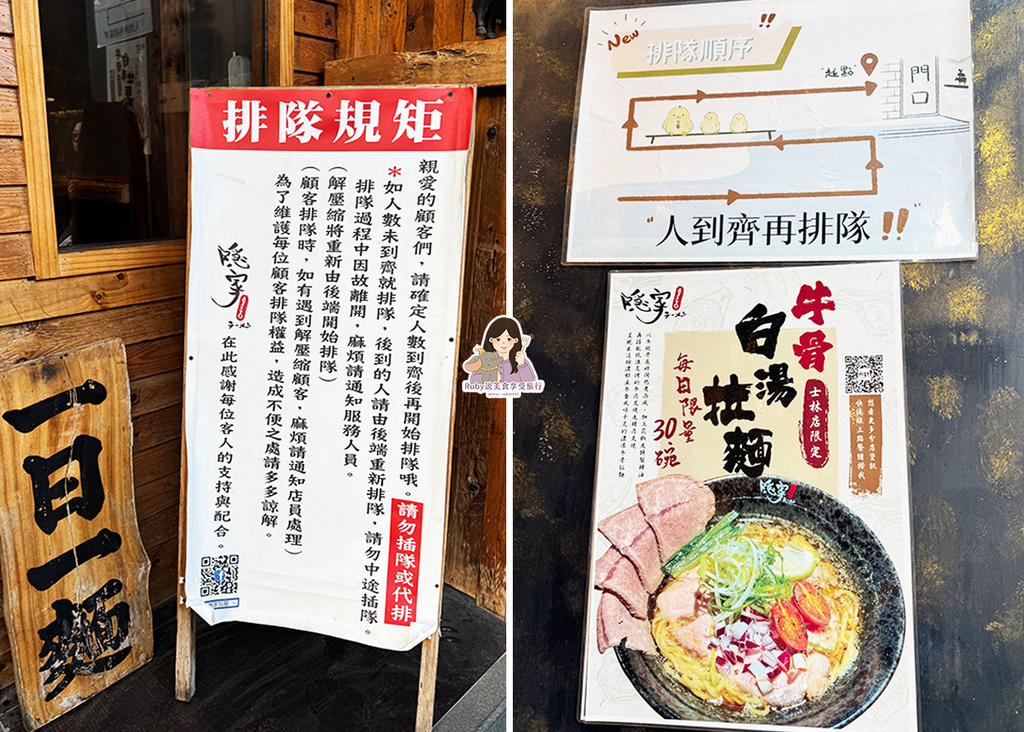 排隊規矩
親愛的顧客們，請確定人數到齊後再開始排隊哦。請勿插隊或代排
＊如人數未到齊就排隊，後到的人請由後端重新排隊，請勿中途插隊。
排隊過程中因故離開，麻煩請通知服務人員。
（解壓縮將重新由後端開始排隊）
（顧客排隊時，如有遇到解壓縮顧客，麻煩請通知店員處理）
為了維護每位顧客排隊權益，造成不便之處請多多諒解。
隱家
ラーメン
在此感謝每位客人的支持與配合。
一日一麵
Ruby說美食享受旅行
New
排隊順序
!!
"起點"
門口
"人到齊再排隊!!"
隱家
ラーメン
牛骨
白湯
拉麵
士林店限定
每日限量
30碗
想看更多分店資訊
快速線上點餐請掃我
隱家